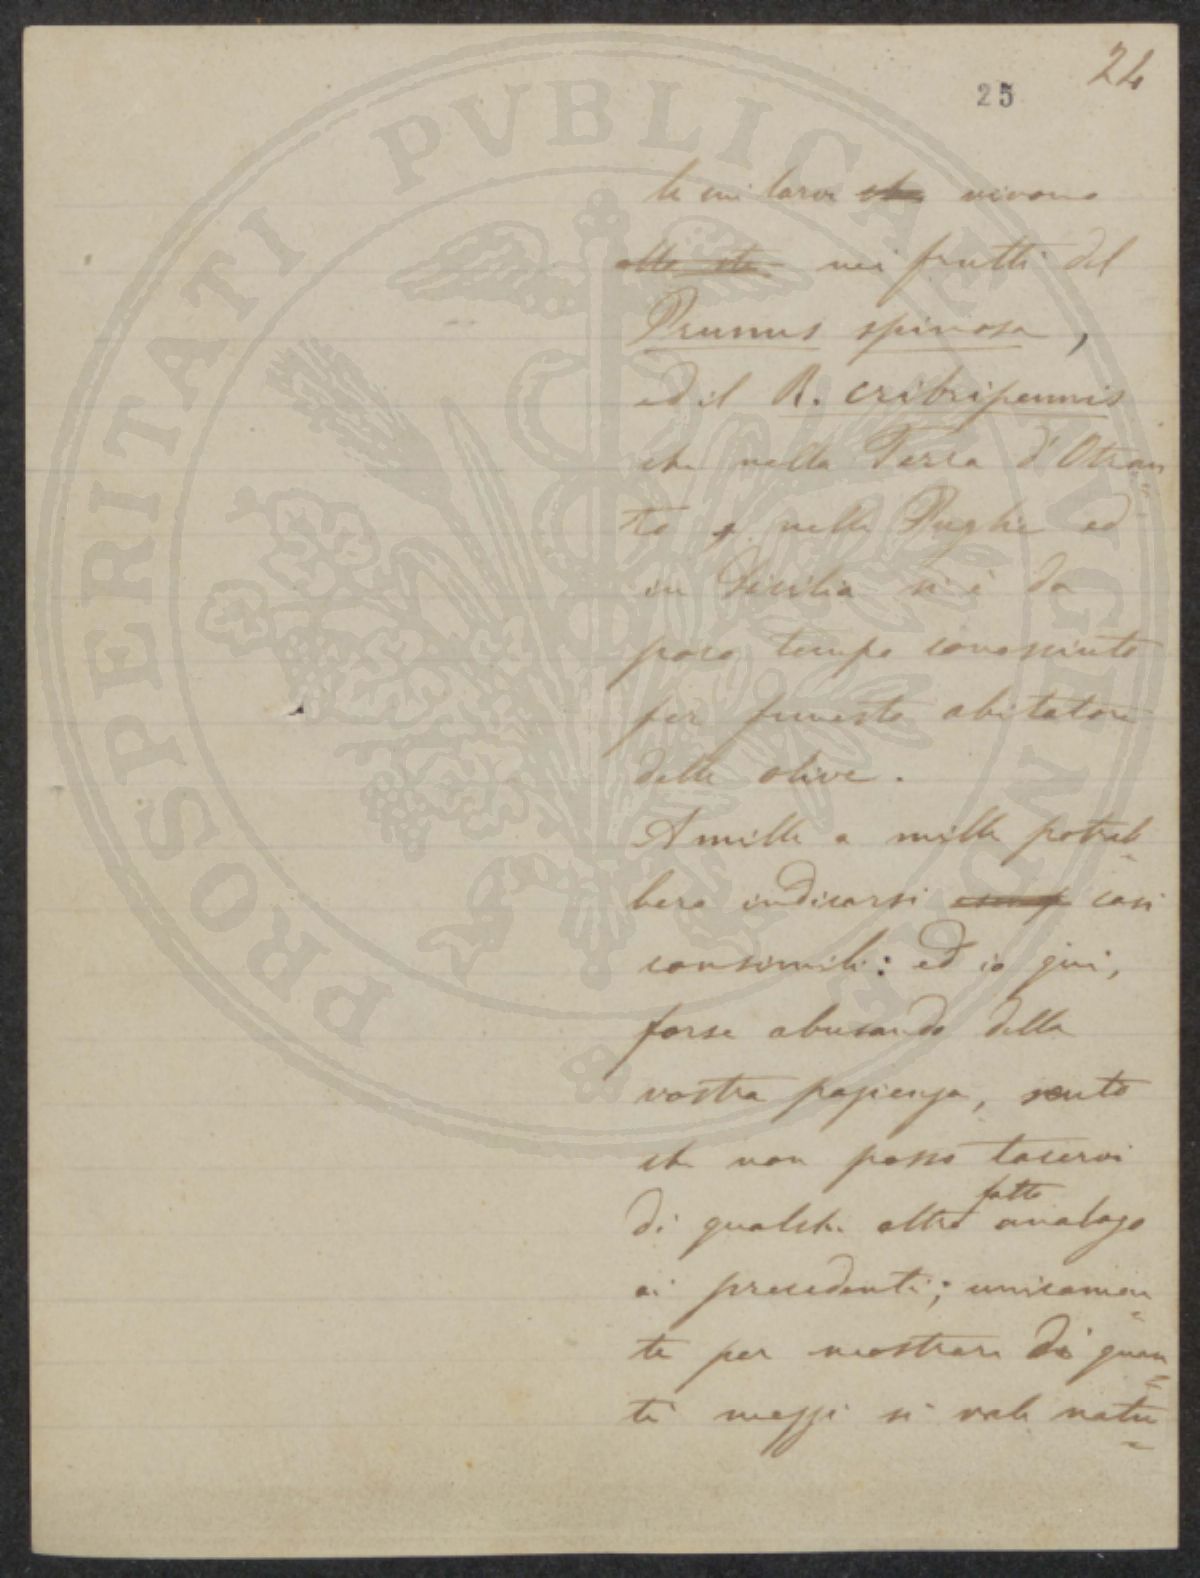 24
25
le cui larve che vivono
alle ste nei frutti del
Prunus spinosa,
ed il R. cribripennis
che nella Terra d'Otran=
to e nelle Puglie ed
in Sicilia si è da
poco tempo conosciuto
per funesto abitatore
delle olive.
A mille a mille potreb=
bero indicarsi esemp casi
consimili: ed io qui,
forse abusando della
vostra pazienza, sento
che non posso tacervi
di qualche altro fatto analogo
ai precedenti; unicamen=
te per mostrare di quan=
ti mezzi si vale natu=
PROSPERITATI PVBLICAE AVGENDAE